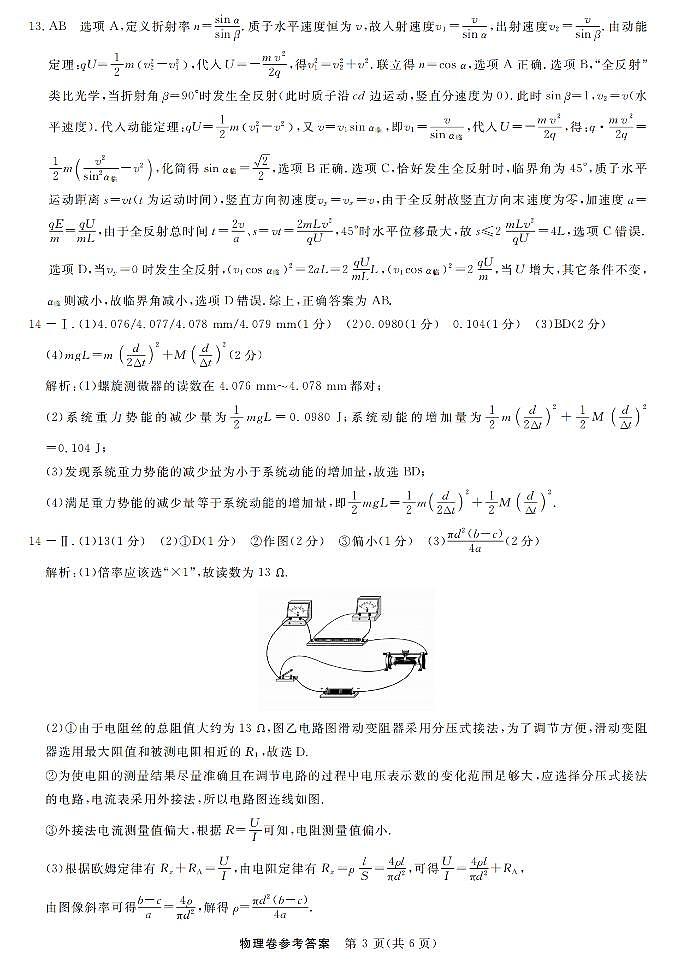 13. AB　选项 A,定义折射率 n=sin α/sin β.质子水平速度恒为 v,故入射速度v₁=v/sin α,出射速度v₂=v/sin β.由动能
定理:qU=1/2 m(v₂²−v₁²),代入 U=−mv²/2q,得v₁²=v₂²+v².联立得 n=cos α,选项 A 正确.选项 B,“全反射”
类比光学,当折射角 β=90°时发生全反射(此时质子沿 cd 边运动,竖直分速度为 0).此时 sin β=1,v₂=v(水
平速度).代入动能定理:qU=1/2 m(v₁²−v²),又 v=v₁sin α临,即v₁=v/sin α临,代入 U=−mv²/2q,得:q·mv²/2q=
1/2 m(v²/sin²α临−v²),化简得 sin α临=√2/2,选项 B 正确.选项 C,恰好发生全反射时,临界角为 45°,质子水平
运动距离 s=vt(t 为运动时间),竖直方向初速度vy=vx=v,由于全反射故竖直方向末速度为零,加速度 a=
qE/m=qU/mL,由于全反射总时间 t=2v/a、s=vt=2mLv²/qU,45°时水平位移最大,故 s≤2 mLv²/qU=4L,选项 C 错误.
选项 D,当vy=0 时发生全反射,(v₁cos α临)²=2aL=2 qU/mL L,(v₁cos α临)²=2 qU/m,当 U 增大,其它条件不变,
α临则减小,故临界角减小,选项 D 错误.综上,正确答案为 AB.
14－Ⅰ.(1)4.076/4.077/4.078 mm/4.079 mm(1 分)　(2)0.0980(1 分)　0.104(1 分)　(3)BD(2 分)
(4)mgL=m(d/2Δt)²+M(d/Δt)²(2 分)
解析:(1)螺旋测微器的读数在 4.076 mm～4.078 mm 都对;
(2)系统重力势能的减少量为1/2 mgL=0.0980 J;系统动能的增加量为1/2 m(d/2Δt)²+1/2 M(d/Δt)²
=0.104 J;
(3)发现系统重力势能的减少量为小于系统动能的增加量,故选 BD;
(4)满足重力势能的减少量等于系统动能的增加量,即1/2 mgL=1/2 m(d/2Δt)²+1/2 M(d/Δt)².
14－Ⅱ.(1)13(1 分)　(2)①D(1 分)　②作图(2 分)　③偏小(1 分)　(3)πd²(b−c)/4a(2 分)
解析:(1)倍率应该选“×1”,故读数为 13 Ω.
(2)①由于电阻丝的总阻值大约为 13 Ω,图乙电路图滑动变阻器采用分压式接法,为了调节方便,滑动变阻
器选用最大阻值和被测电阻相近的 R₁,故选 D.
②为使电阻的测量结果尽量准确且在调节电路的过程中电压表示数的变化范围足够大,应选择分压式接法
的电路,电流表采用外接法,所以电路图连线如图.
③外接法电流测量值偏大,根据 R=U/I可知,电阻测量值偏小.
(3)根据欧姆定律有 Rx+RA=U/I,由电阻定律有 Rx=ρ l/S=4ρl/πd²,可得U/I=4ρl/πd²+RA,
由图像斜率可得b−c/a=4ρ/πd²,解得 ρ=πd²(b−c)/4a.
物理卷参考答案　第 3 页(共 6 页)